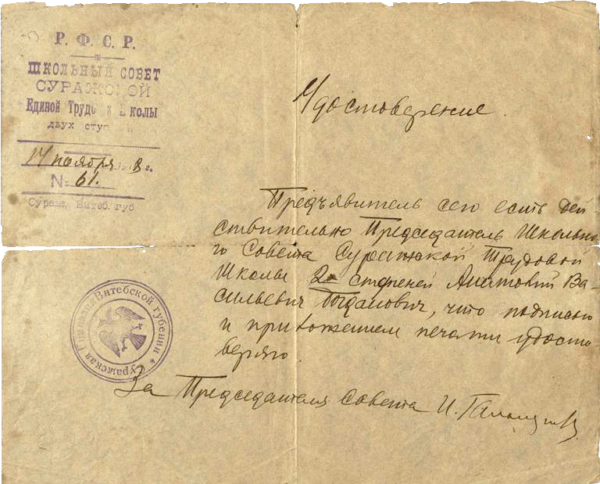 Р. Ф. С. Р.
ШКОЛЬНЫЙ СОВЕТ
СУРАЖСКОЙ
Единой Трудо й колы
двух сту
14 ноября 8 г.
№ 61.
Сураж. Витеб. губ
Удостоверение.
Предъявитель сего есть дей
ствительно Председатель Школьно
го Совета Суражской Трудовой
Школы 2х степеней Анатолий Ва
сильевич Богданович, что подписью
и приложением печати удосто
веряю.
За Председателя Совета И.
Суражская Витебской губернии